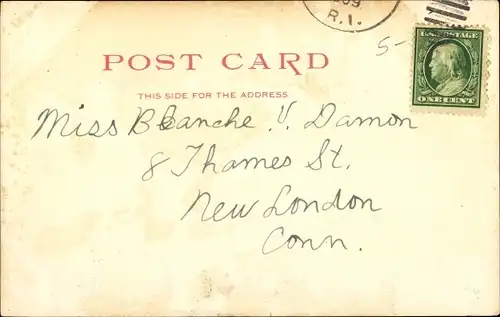 09
R.I.
POST CARD
THIS SIDE FOR THE ADDRESS
5-
U.S. POSTAGE
ONE CENT
Miss Blanche V. Damon
8 Thames St.
New London
Conn.